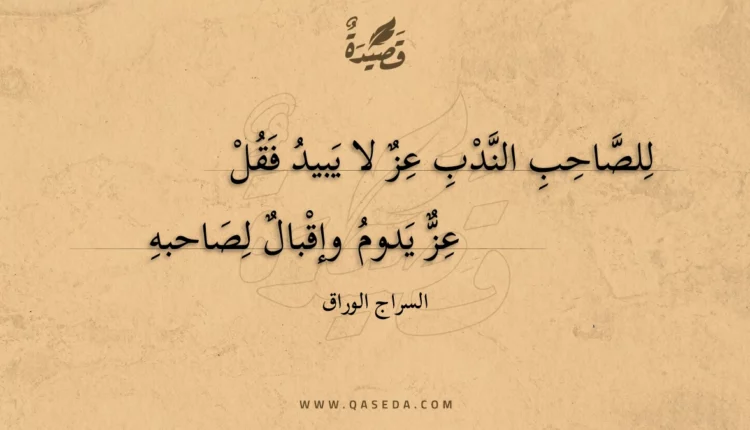 قَصِيْدَةٌ
لِلصَّاحِبِ النَّدْبِ عِزٌ لا يَبيدُ فَقُلْ
عِزٌّ يَدومُ وإقْبالٌ لِصَاحبهِ
السراج الوراق
WWW.QASEDA.COM